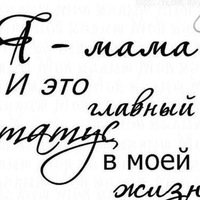 Я - мама
И это
главный
статус
в моей
жизн